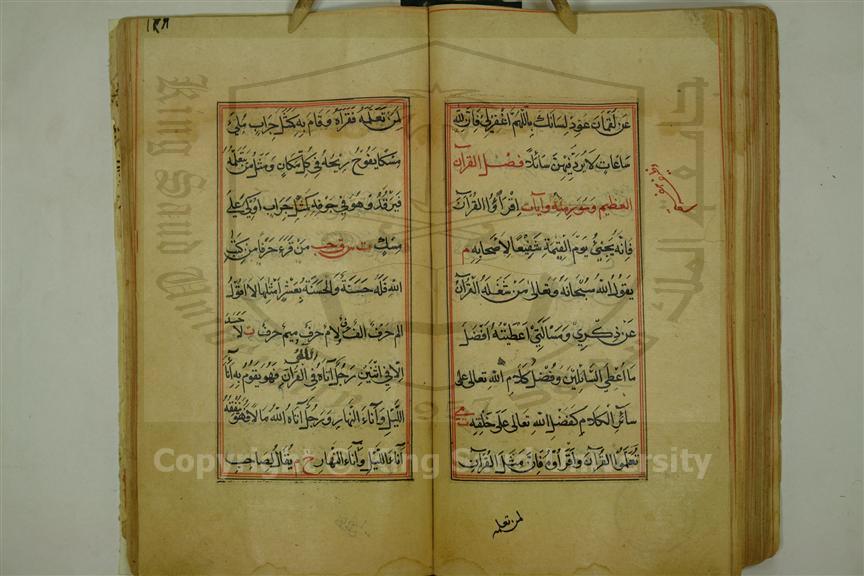 عن لقمان عود لسانك باللهم اغفرلي فان لله
ساعات لا يرد فيهن سائلا فضل القرآن
العظيم وسور منه وآيات اقرأوا القرآن
فانه يجئ يوم القيمة شفيعا لاصحابه م
يقول الله سبحانه وتعالى من شغله القرآن
عن ذكري ومسألتي اعطيته افضل
ما اعطي السائلين وفضل كلام الله تعالى على
سائر الكلام كفضل الله تعالى على خلقه ت مي
تعلموا القرآن واقرأوه فان مثل القرآن
لمن تعلمه
١٢٨
لمن تعلمه فقرأه وقام به كمثل جراب ملئ
مسكا يفوح ريحه في كل مكان ومثل من تعلمه
فيرقد وهو في جوفه كمثل جراب اوكئ على
مسك ت س ق حب من قرء حرفا من كتاب
الله فله حسنة والحسنة بعشر امثالها لا اقول
الم حرف الف حرف لام حرف ميم حرف ت لا حسد
الا في اثنين رجل آتاه الله القرآن فهو يقوم به آناء
الليل وآناء النهار ورجل آتاه الله مالا فهو ينفقه
آناء الليل وآناء النهار خ م يقال لصاحب
King Saud University
جامعة الملك سعود
1957
Copyright © King Saud University